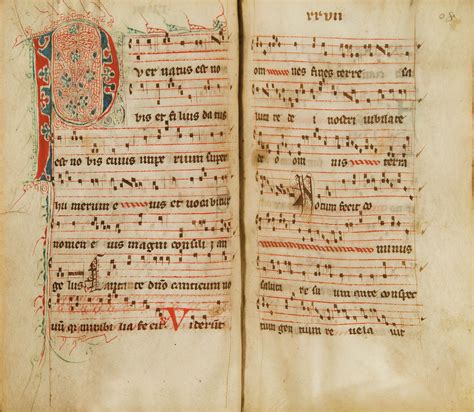 Puer natus est no
bis et filius da tus
est no bis cuius impe rium super
hu merum e ius et vocabitur
nomen e ius magni consili j an
ge lus Cantate dño canticum no
vũ mirabi lia fecit Viderunt
xxvii
om nes fines terre sa
lutare de i nostri iubilate
deo om nis terra
Notum fecit do
minus
saluta re su um ante conspec
tum gen tium re vela vit